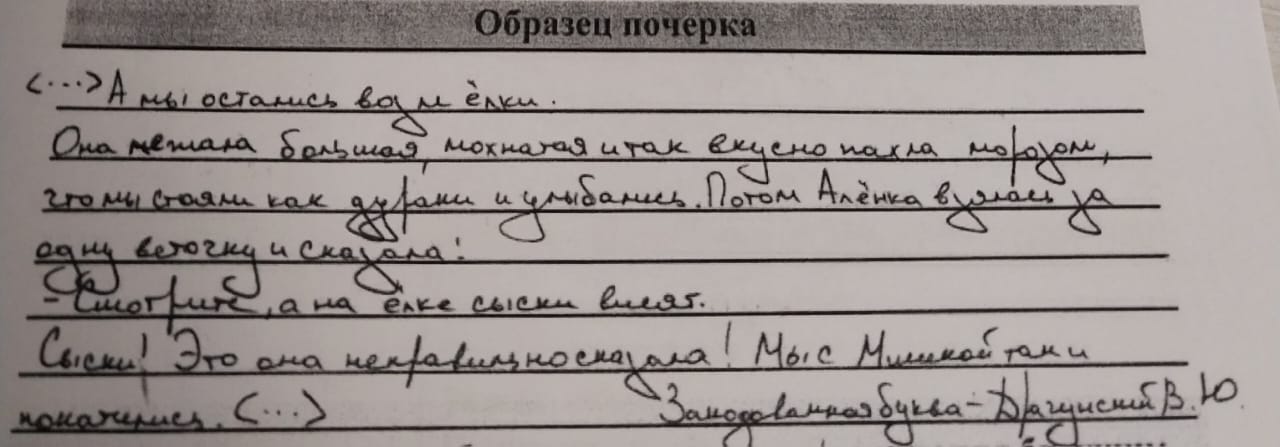 Образец почерка
<...> А мы остались возле ёлки.
Она лежала большая, мохнатая и так вкусно пахла морозом,
что мы стояли как дураки и улыбались. Потом Алёнка взялась за
одну веточку и сказала:
- Смотрите, а на ёлке сыски висят.
Сыски! Это она неправильно сказала! Мы с Мишкой так и
покатились. <...> Заколдованная буква - Драгунский В. Ю.